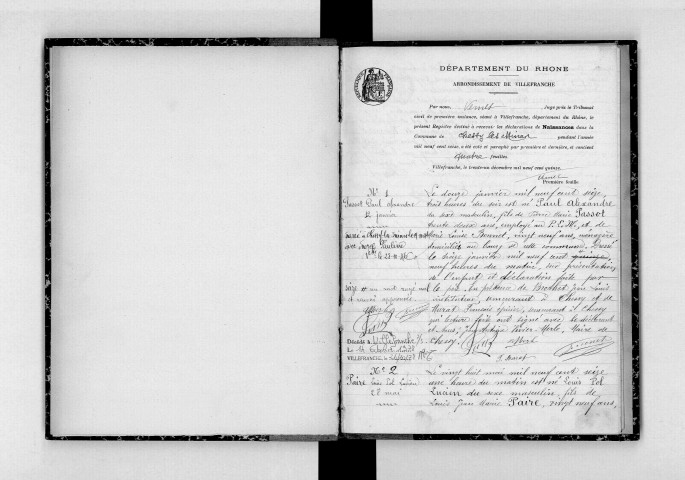 DÉPARTEMENT DU RHONE
ARRONDISSEMENT DE VILLEFRANCHE
Par nous, Juge près le Tribunal
civil de première instance, séant à Villefranche, département du Rhône, le
présent Registre destiné à recevoir les déclarations de Naissances dans la
Commune de Chessy les Mines pendant l'année
mil neuf cent seize, a été coté et paraphé par première et dernière, et contient
quatre feuilles.
Villefranche, le trente-un décembre mil neuf cent quinze.
Première feuille.
N° 1
Passot Paul Alexandre
12 janvier
Le douze janvier mil neuf cent seize,
huit heures du soir est né Paul Alexandre
du sexe masculin, fils de Marie Passot
trente deux ans, employé au P.L.M., et de
Marie Louise, vingt neuf ans, ménagère
domiciliés au bourg de cette commune. Dressé
le seize janvier mil neuf cent
neuf heures du matin, sur présentation
de l'enfant et déclaration faite par
le père. En présence de Jean Louis
instituteur, demeurant à Chessy et de
Murat François épicier, demeurant à Chessy
qui lecture faite ont signé avec le déclarant
et nous, Merle, Maire de
Chessy.
seize
Décédé à Villefranche s/s
VILLEFRANCHE, le
N° 2
Paire Louis Pol Lucien
28 mai
Le vingt huit mai mil neuf cent seize
onze heures du matin est né Louis Pol
Lucien du sexe masculin, fils de
Louis Jean Marie Paire, vingt neuf ans,